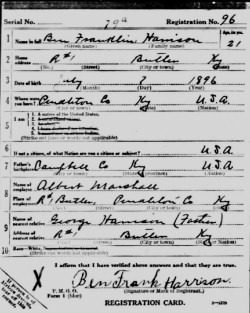 Serial No. 79a Registration No. 96
1 Name in full Ben Franklin Harrison Age, in yrs. 21
(Given name) (Family name)
2 Home address R#1 Butler Ky
(No.) (Street) (City or town) (State)
3 Date of birth July 7 1896
(Month) (Day) (Year)
4 Where were you born? Pendleton Co Ky U.S.A.
(City or town) (State) (Nation)
5 I am 1. A native of the United States.
(Strike out lines or words not applicable)
6 If not a citizen, of what Nation are you a citizen or subject? U.S.A
7 Father's birthplace Campbell Co Ky U.S.A.
(City or town) (State) (Nation)
8 Name of employer Albert Marshall
Place of employment R#1 Butler, Pendleton Co Ky
(No.) (Street) (City or town) (State)
9 Name of nearest relative George Harrison (Father)
Address of nearest relative R#1 Butler Ky
(No.) (Street) (City or town) (State)
10 Race—White
I affirm that I have verified above answers and that they are true.
X Ben Frank Harrison.
P. M. G. O.
Form 1 (blue) (Signature or Mark of Registrant.)
REGISTRATION CARD.